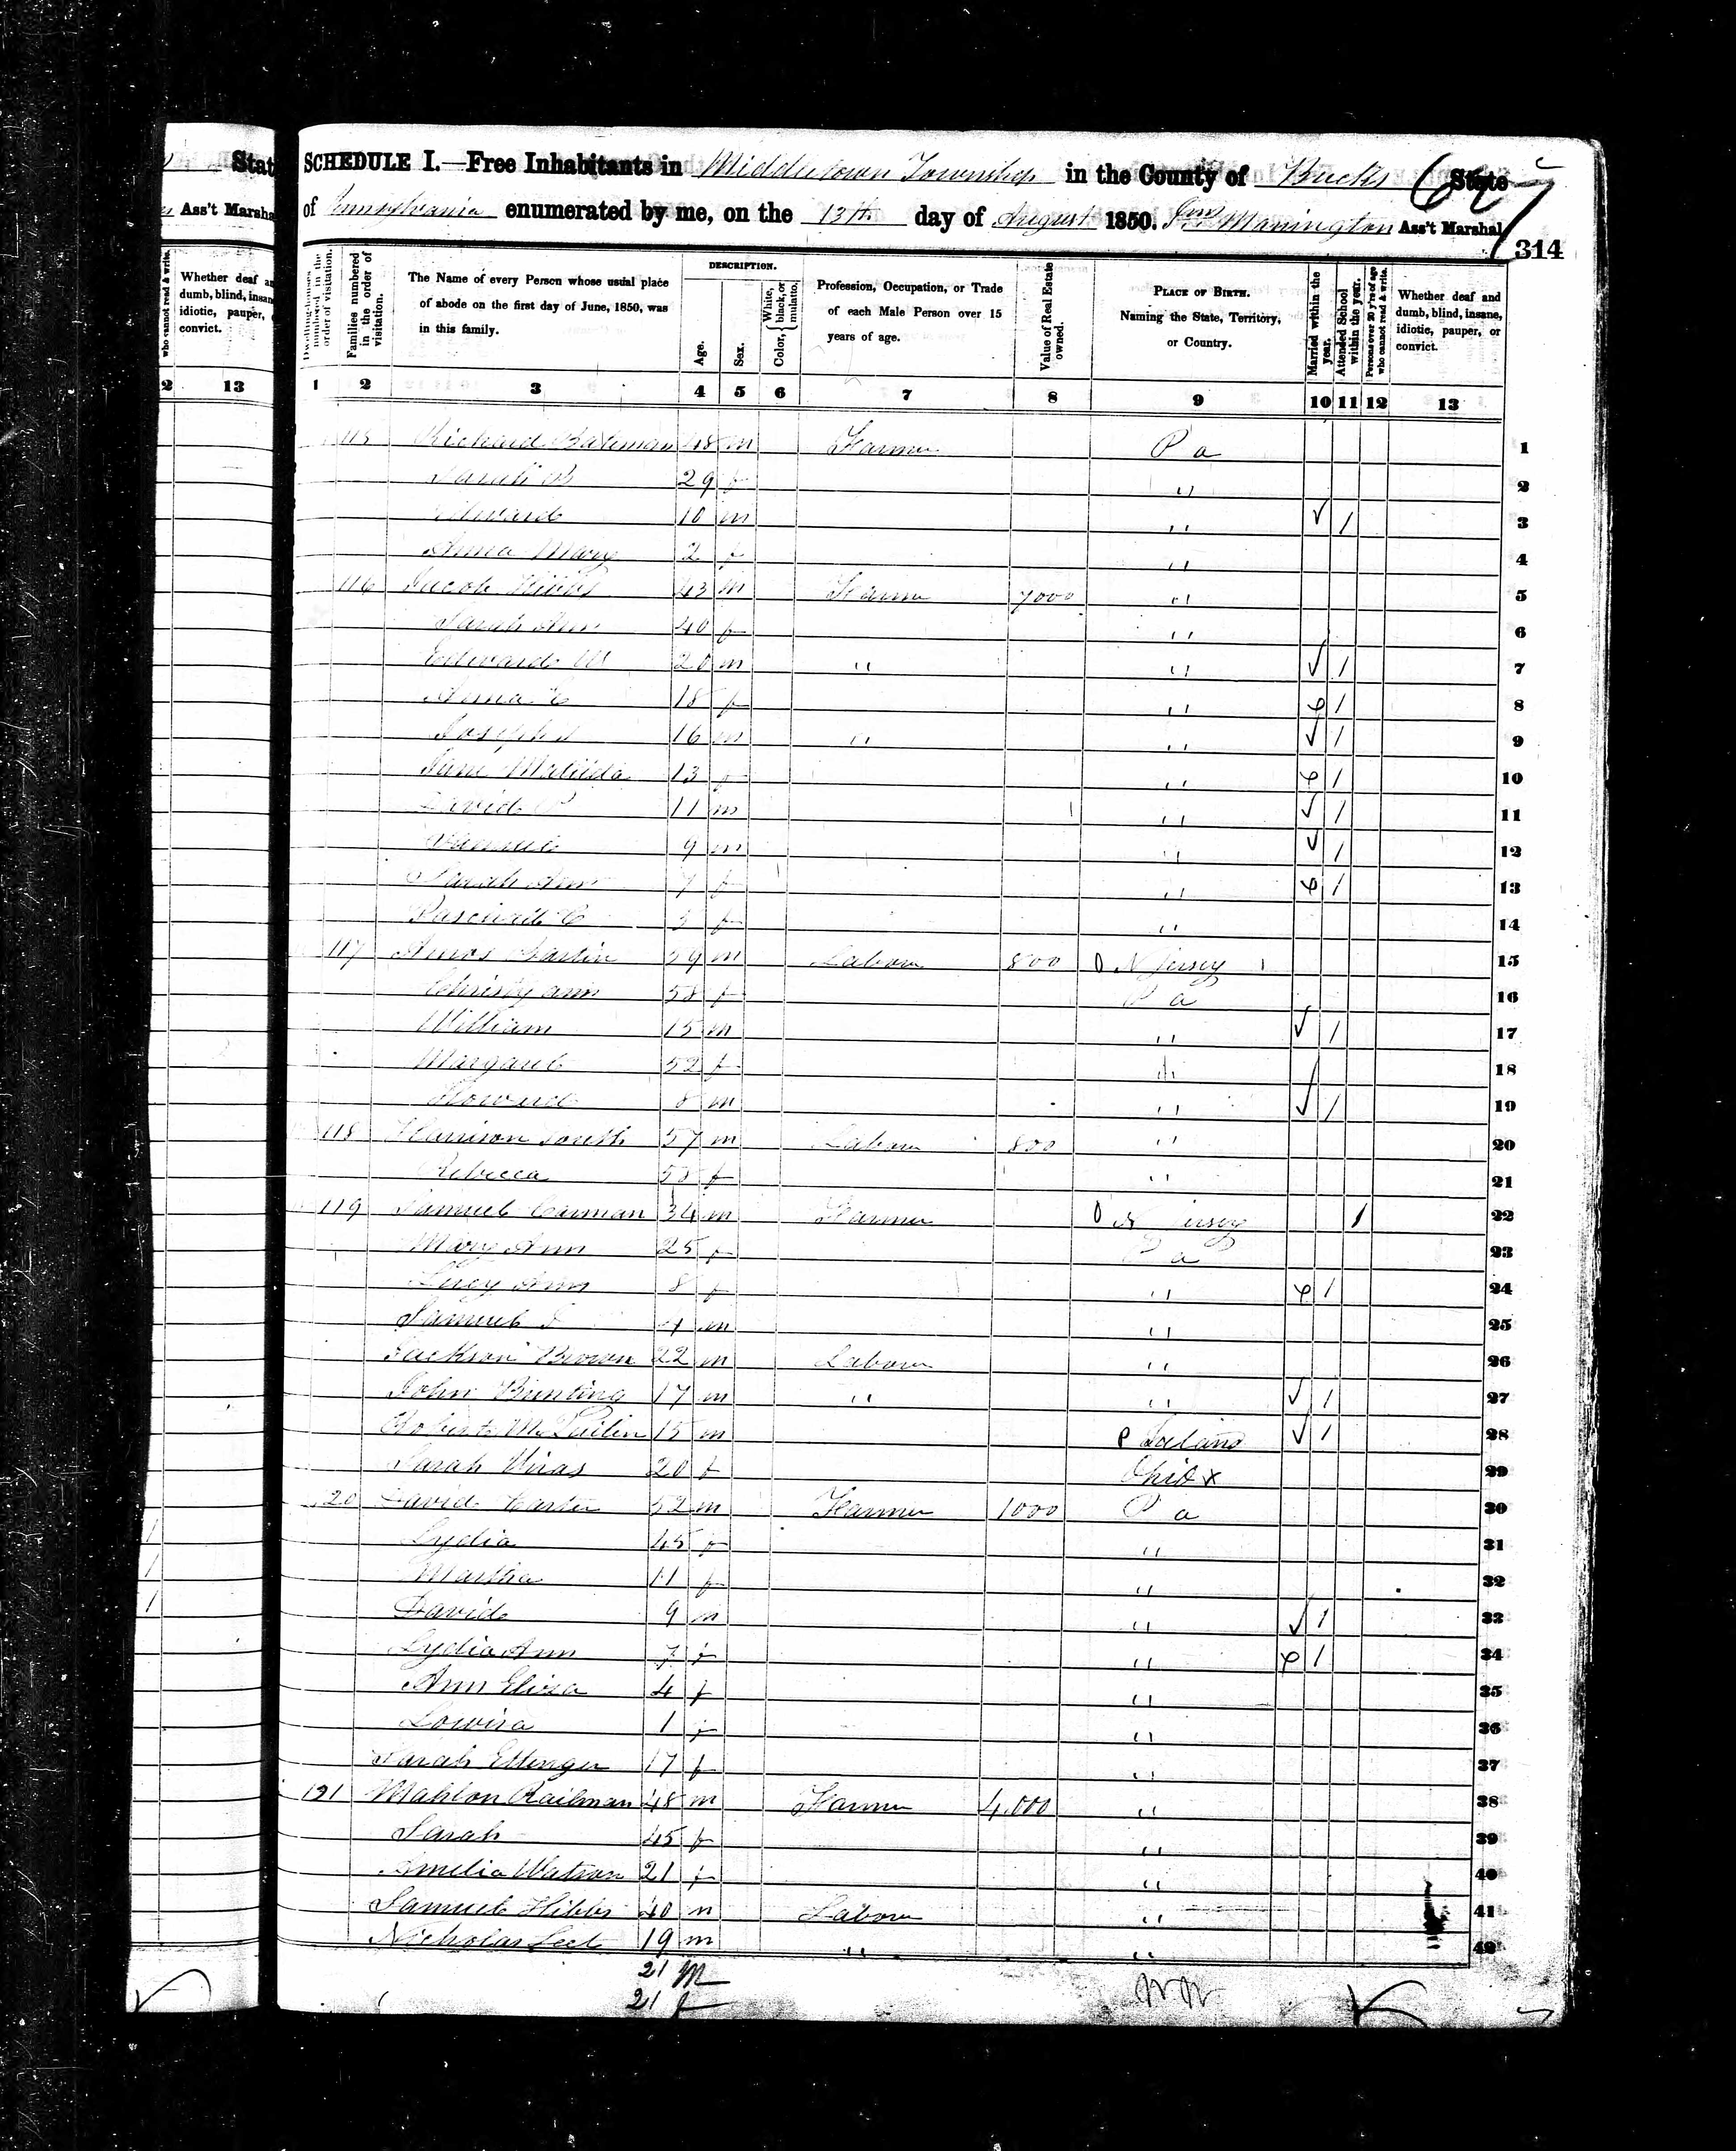 State
Ass't Marshal
who cannot read & write.
Whether deaf and dumb, blind, insane, idiotic, pauper, or convict.
2 13
SCHEDULE I.—Free Inhabitants in Middletown Township in the County of Bucks State
627
of Pennsylvania enumerated by me, on the 13th day of August 1850. Ass't Marshal
314
Dwelling-houses numbered in the order of visitation.
Families numbered in the order of visitation.
The Name of every Person whose usual place of abode on the first day of June, 1850, was in this family.
DESCRIPTION.
Age.
Sex.
Color, { White, black, or mulatto.
Profession, Occupation, or Trade of each Male Person over 15 years of age.
Value of Real Estate owned.
PLACE OF BIRTH. Naming the State, Territory, or Country.
Married within the year.
Attended School within the year.
Persons over 20 y'rs of age who cannot read & write.
Whether deaf and dumb, blind, insane, idiotic, pauper, or convict.
1 2 3 4 5 6 7 8 9 10 11 12 13
115 Richard 48 m Farmer Pa 1
Sarah 29 f " 2
Edward 10 m " √ 1 3
Anna Mary 2 f " 4
116 Jacob Hibbs 43 m Farmer 7000 " 5
Sarah Ann 40 f " 6
Edward W 20 m " " √ 1 7
Anna C 18 f " 1 8
Joseph 16 m " " √ 1 9
Jane Matilda 13 f " 1 10
David P 11 m " √ 1 11
Samuel 9 m " √ 1 12
Sarah Ann 7 f " 1 13
f " 14
117 Amos 59 m Labour 800 N Jersey 15
Christy ann 58 f Pa 16
William 15 m " √ 1 17
Margaret 52 f " 18
Howard 8 m " √ 1 19
118 Harrison South 57 m Labour 800 " 20
Rebecca f " 21
119 Samuel Carman 34 m Farmer N Jersey 1 22
Mary Ann 25 f Pa 23
Lucy Ann 8 f " 1 24
Samuel m " 25
Jackson Brown 22 m Labour " 26
John Bunting 17 m " " √ 1 27
Robert 15 m Ireland √ 1 28
Sarah 20 f Ohio x 29
120 David Carter 52 m Farmer 1000 Pa 30
Lydia 45 f " 31
Martha 11 f " 32
David 9 m " √ 1 33
Lydia Ann 7 f " 1 34
Ann Eliza 4 f " 35
Lowisa 1 f " 36
Sarah Ettinger 17 f " 37
121 Mahlon 48 m Farmer 4.000 " 38
Sarah 45 f " 39
Amelia Watson 21 f " 40
Samuel Hibbs 40 m Labour " 41
Nicholas 19 m " " 42
21 M
21 f